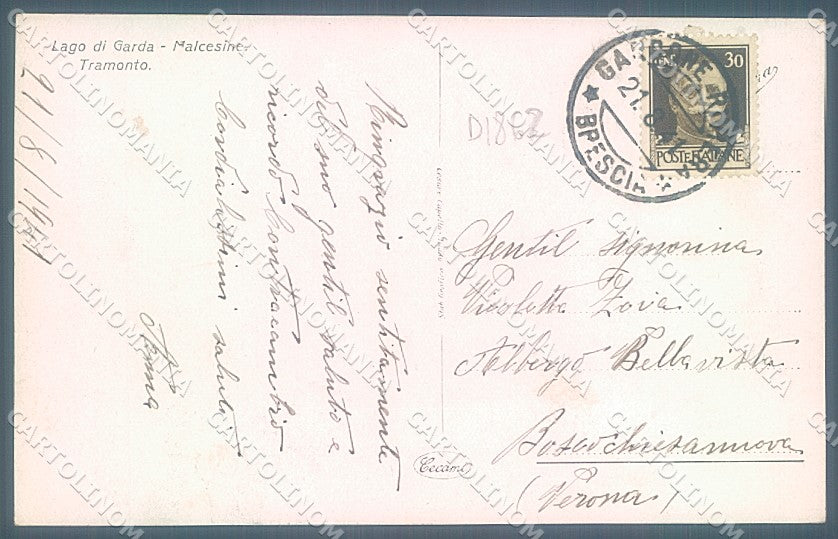 Lago di Garda - Malcesine.
Tramonto.
21/8/1941
Ringrazio sentitamente
del suo gentil saluto e
ricordo Contracambio
Cordialissimi saluti
D1862
GARDONE RIVIERA
21.8.41
★ BRESCIA ★
30
POSTE ITALIANE
Gentil Signorina
Nicoletta Zoia
Albergo Bellavista
Boscochiesanuova
(Verona)
Cecami
CARTOLINOMANIA